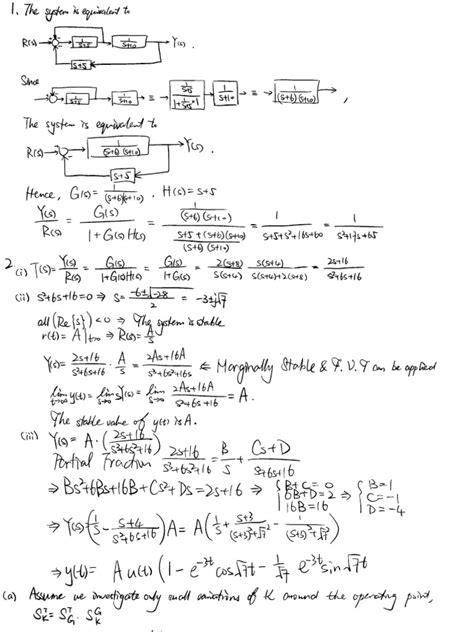 1. The system is equivalent to
R(s) → 1/(s+5) → 1/(s+10) → Y(s).
s+5
Since
1/(s+5) → 1/(s+10) → ≡ → (1/(s+5))/(1+1/(s+5)·1) → 1/(s+10) → ≡ → 1/((s+6)(s+10)) ,
The system is equivalent to
R(s) → 1/((s+6)(s+10)) → Y(s).
s+5
Hence, G(s) = 1/((s+6)(s+10)). H(s) = s+5
Y(s)/R(s) = G(s)/(1+G(s)H(s)) = (1/((s+6)(s+10)))/((s+5+(s+6)(s+10))/((s+6)(s+10))) = 1/(s+5+s²+16s+60) = 1/(s²+17s+65)
2. (i) T(s) = Y(s)/R(s) = G(s)/(1+G(s)H(s)) = G(s)/(1+G(s)) = 2(s+8)/(s(s+4)) · s(s+4)/(s(s+4)+2(s+8)) = (2s+16)/(s²+6s+16)
(ii) s²+6s+16=0 ⇒ s = (-6±√-28)/2 = -3±√7
all (Re{s}) < 0 ⇒ The system is stable
r(t) = A|t→∞ ⇒ R(s) = A/s
Y(s) = (2s+16)/(s²+6s+16) · A/s = (2As+16A)/(s³+6s²+16s) ⇐ Marginally Stable & F.V.T can be applied
lim t→∞ y(t) = lim s→0 sY(s) = lim s→0 (2As+16A)/(s²+6s+16) = A.
The stable value of y(t) is A.
(iii) Y(s) = A·((2s+16)/(s³+6s²+16))
Partial Fraction (2s+16)/(s³+6s²+16) = B/s + (Cs+D)/(s²+6s+16)
⇒ Bs²+6Bs+16B+Cs²+Ds = 2s+16 ⇒ { B+C=0 6B+D=2 16B=16 ⇒ { B=1 C=-1 D=-4
⇒ Y(s) = (1/s - (s+4)/(s²+6s+16))A = A(1/s + (s+3)/((s+3)²+√7²) - 1/((s+3)²+√7²))
⇒ y(t) = A u(t) (1 - e^{-3t} cos√7t - 1/√7 e^{-3t} sin√7t
(a) Assume we investigate only small variations of K around the operating point,
S^T_K = S^T_G · S^G_K